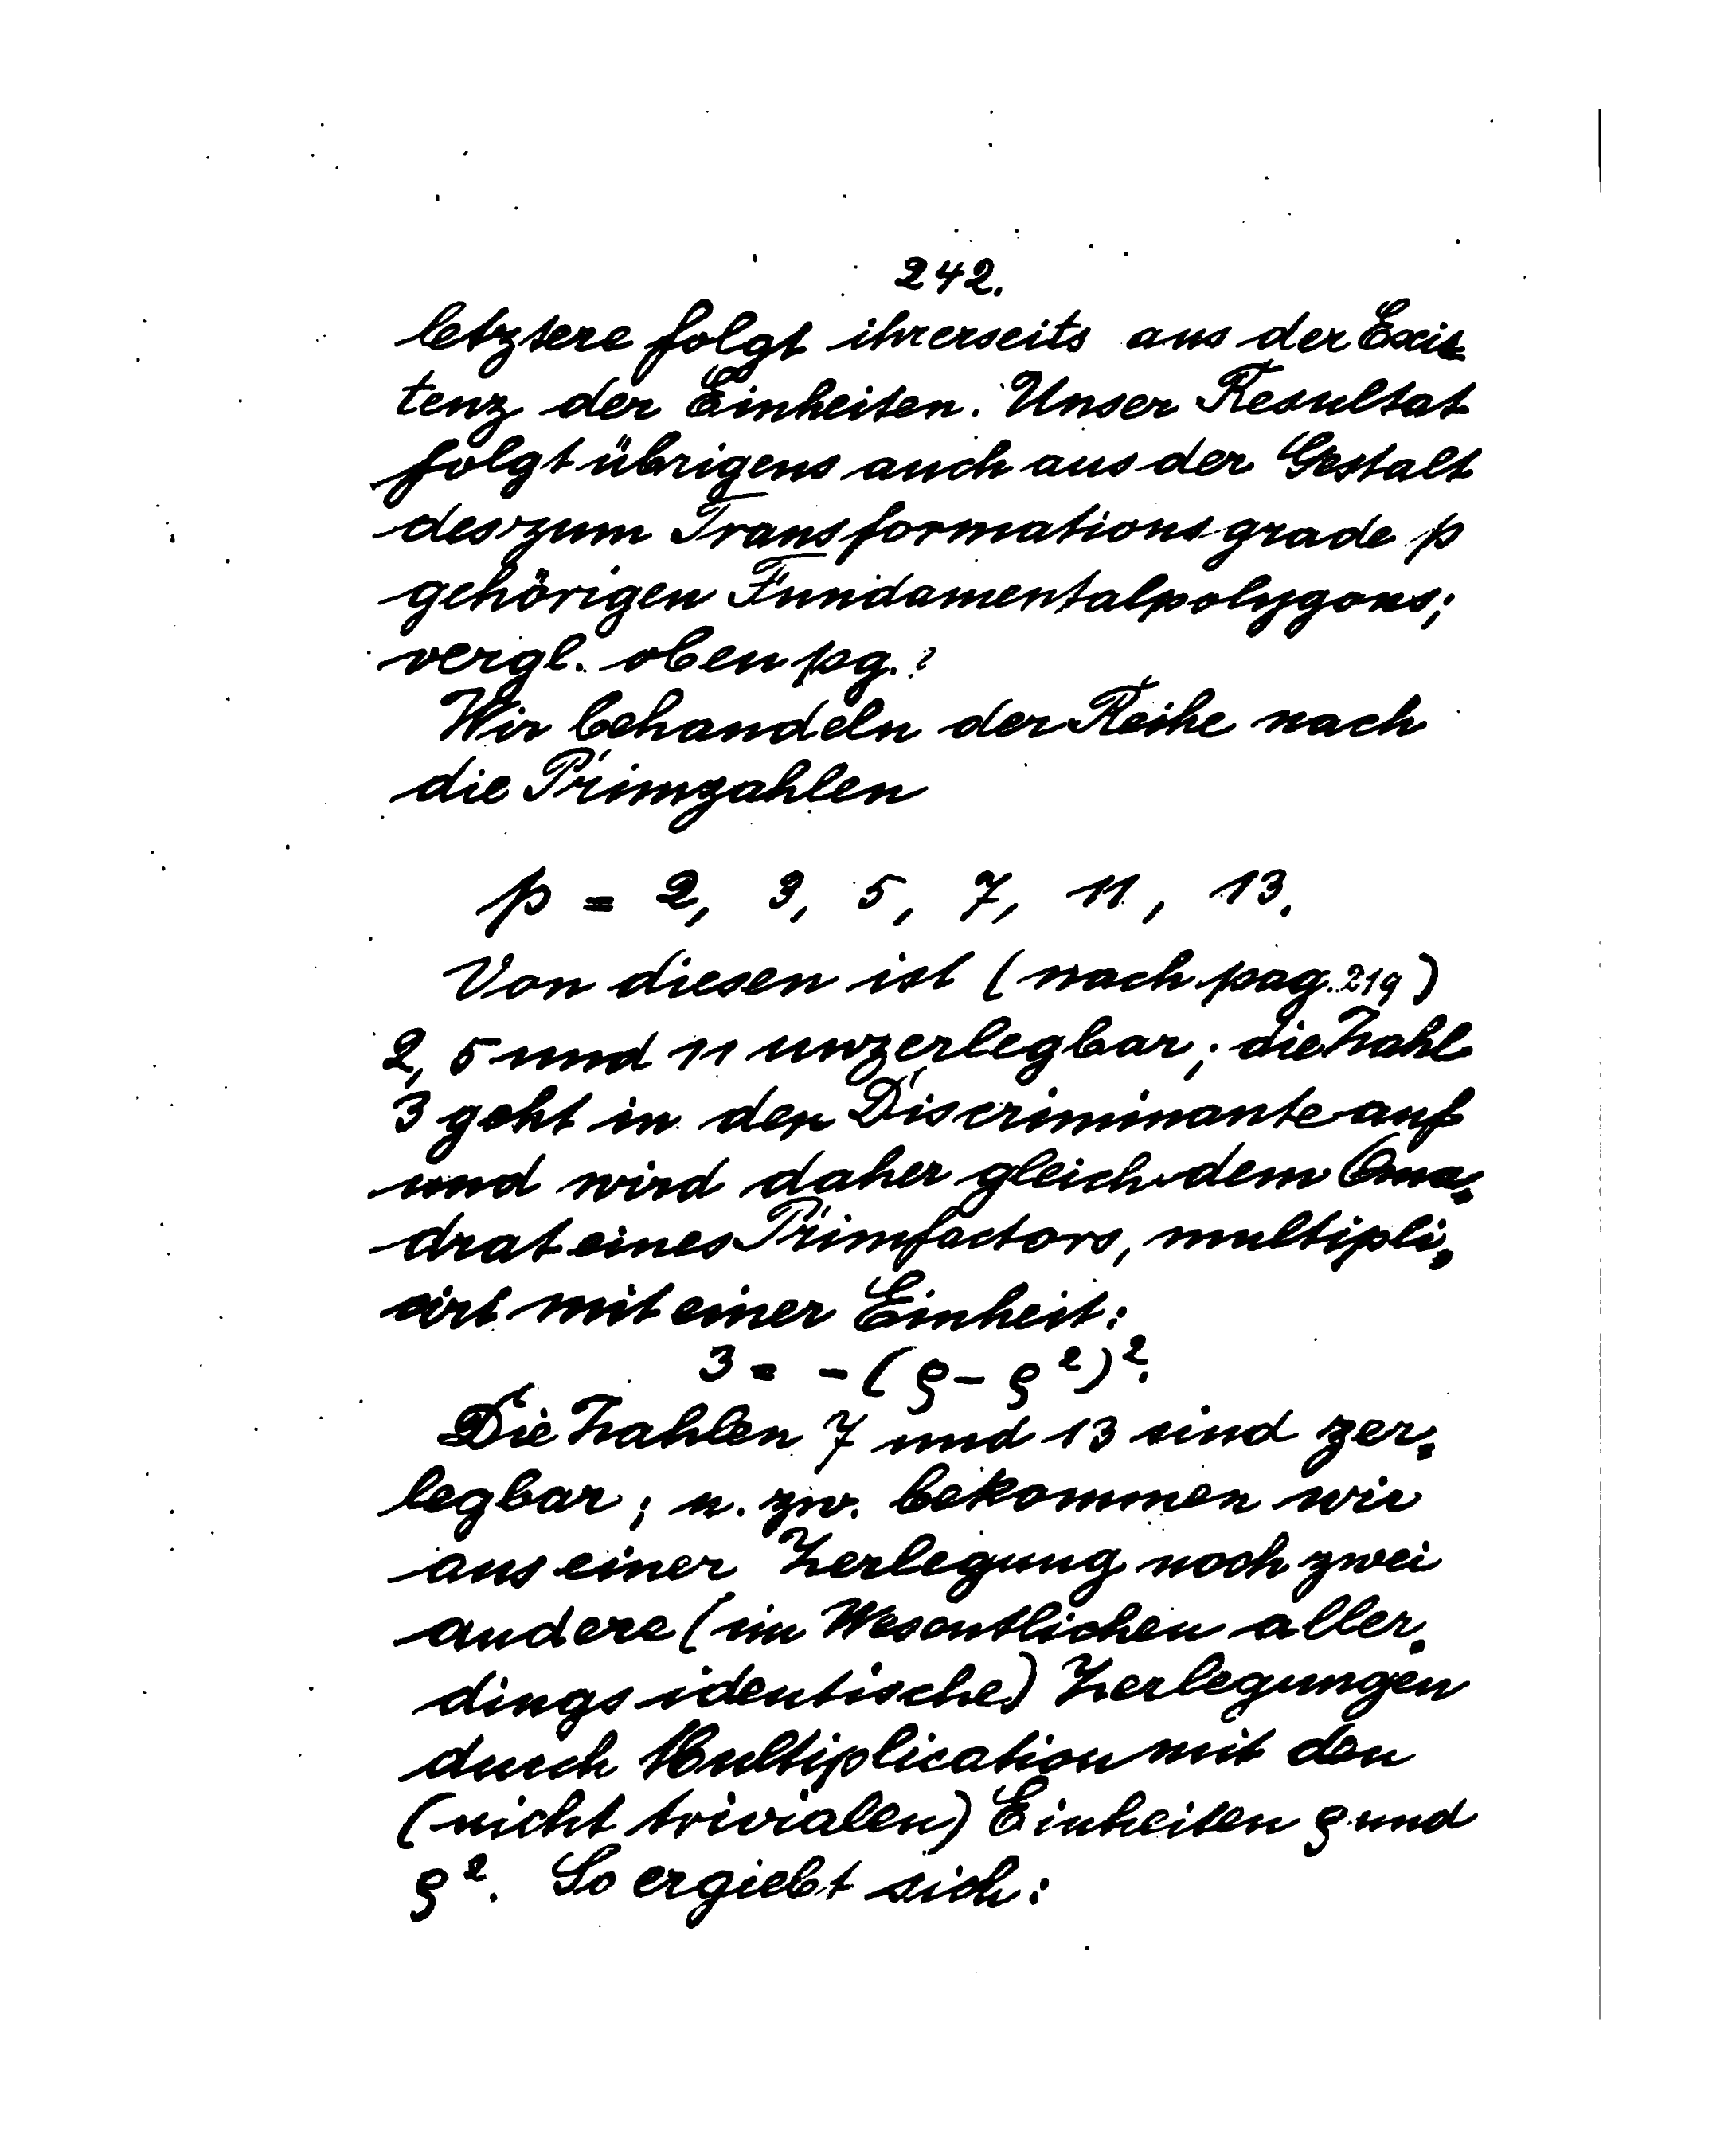 242.
letztere folgt ihrerseits aus der Exis-
tenz der Einheiten. Unser Resultat
folgt übrigens auch aus der Gestalt
des zum Transformationsgrade p
gehörigen Fundamentalpolygons;
vergl. oben pg.?
Wir behandeln der Reihe nach
die Primzahlen
p = 2, 3, 5, 7, 11, 13.
Von diesen ist (nach pag. 219)
2, 5 und 11 unzerlegbar; die Zahl
3 geht in der Discriminante auf
und wird daher gleich dem Qua-
drat eines Primfactors, multipli-
cirt mit einer Einheit:
3 = -(ϱ - ϱ²)².
Die Zahlen 7 und 13 sind zer-
legbar; u. zw. bekommen wir
aus einer Zerlegung noch zwei
andere (im Wesentlichen aller-
dings identische) Zerlegungen
durch Multiplication mit den
(nicht trivialen) Einheiten ϱ und
ϱ². So ergiebt sich: